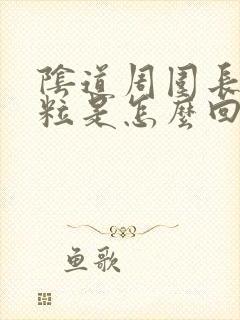 陰道周围長
粒是怎麼回
鱼歌